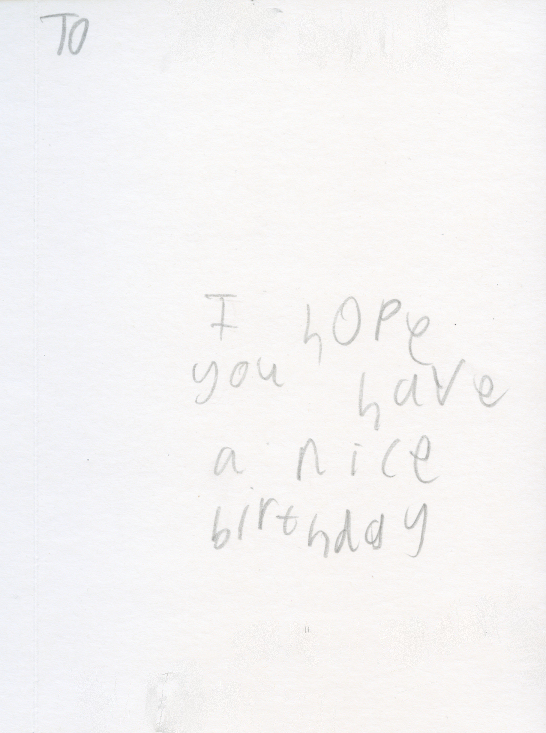 TO
I hope
you have
a nice
birthday